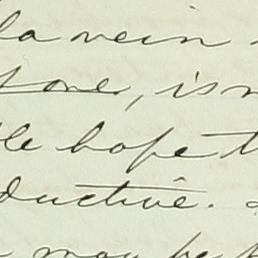 la vein
tone, is n
le hope t
ductive.
may be